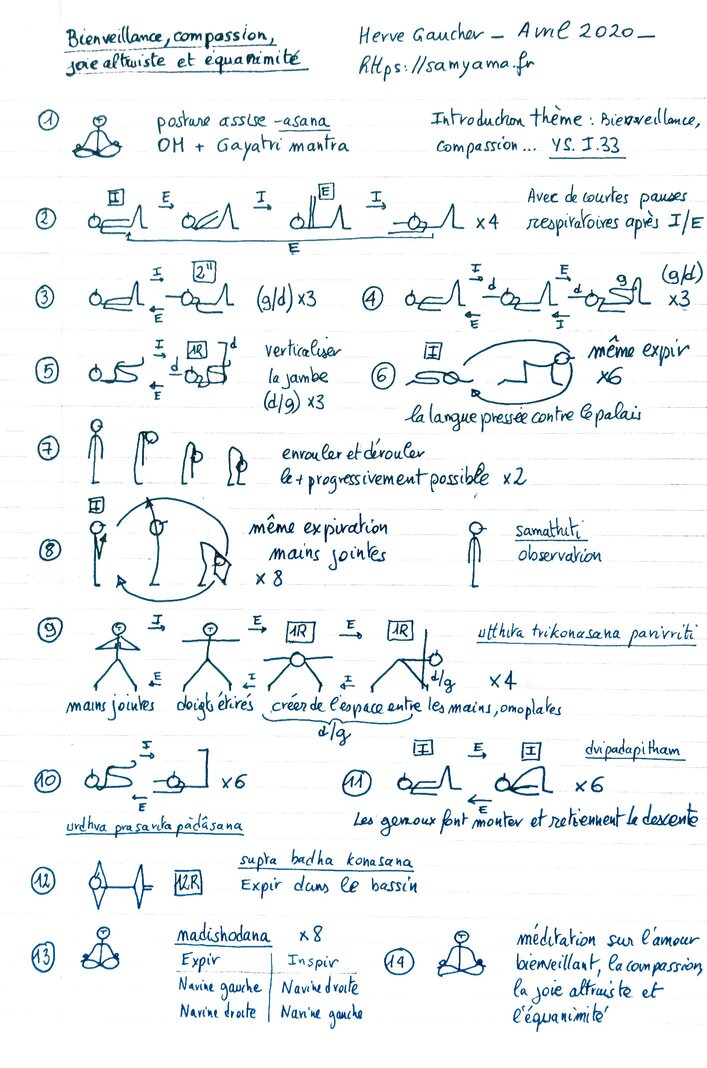 Bienveillance, compassion,
joie altruiste et équanimité
Herve Gaucher _ Avril 2020 _
https://samyama.fr
1 posture assise - asana
OH + Gayatri mantra
Introduction thème : Bienveillance,
compassion... YS. I.33
2 I E I E I
E
x4
Avec de courtes pauses
respiratoires après I/E
3 I 2" (g/d) x3
E
4 I E (g/d)
d d g x3
E I
5 I 1R d
d
E
verticaliser
la jambe
(d/g) x3
6 I même expir
x6
la langue pressée contre le palais
7 enrouler et dérouler
le + progressivement possible x2
8 I même expiration
mains jointes
x 8
samathiti
observation
9 I E 1R E 1R
E I I d/g
utthita trikonasana parivriti
x4
mains jointes doigts étirés créer de l'espace entre les mains, omoplates
d/g
10 I
E
x6
urdhva prasarita pâdâsana
11 I E I
E
dvipadapitham
x6
Les genoux font monter et retiennent la descente
12 12R
supta badha konasana
Expir dans le bassin
13 nadishodana x8
Expir Inspir
Narine gauche Narine droite
Narine droite Narine gauche
14 méditation sur l'amour
bienveillant, la compassion,
la joie altruiste et
l'équanimité